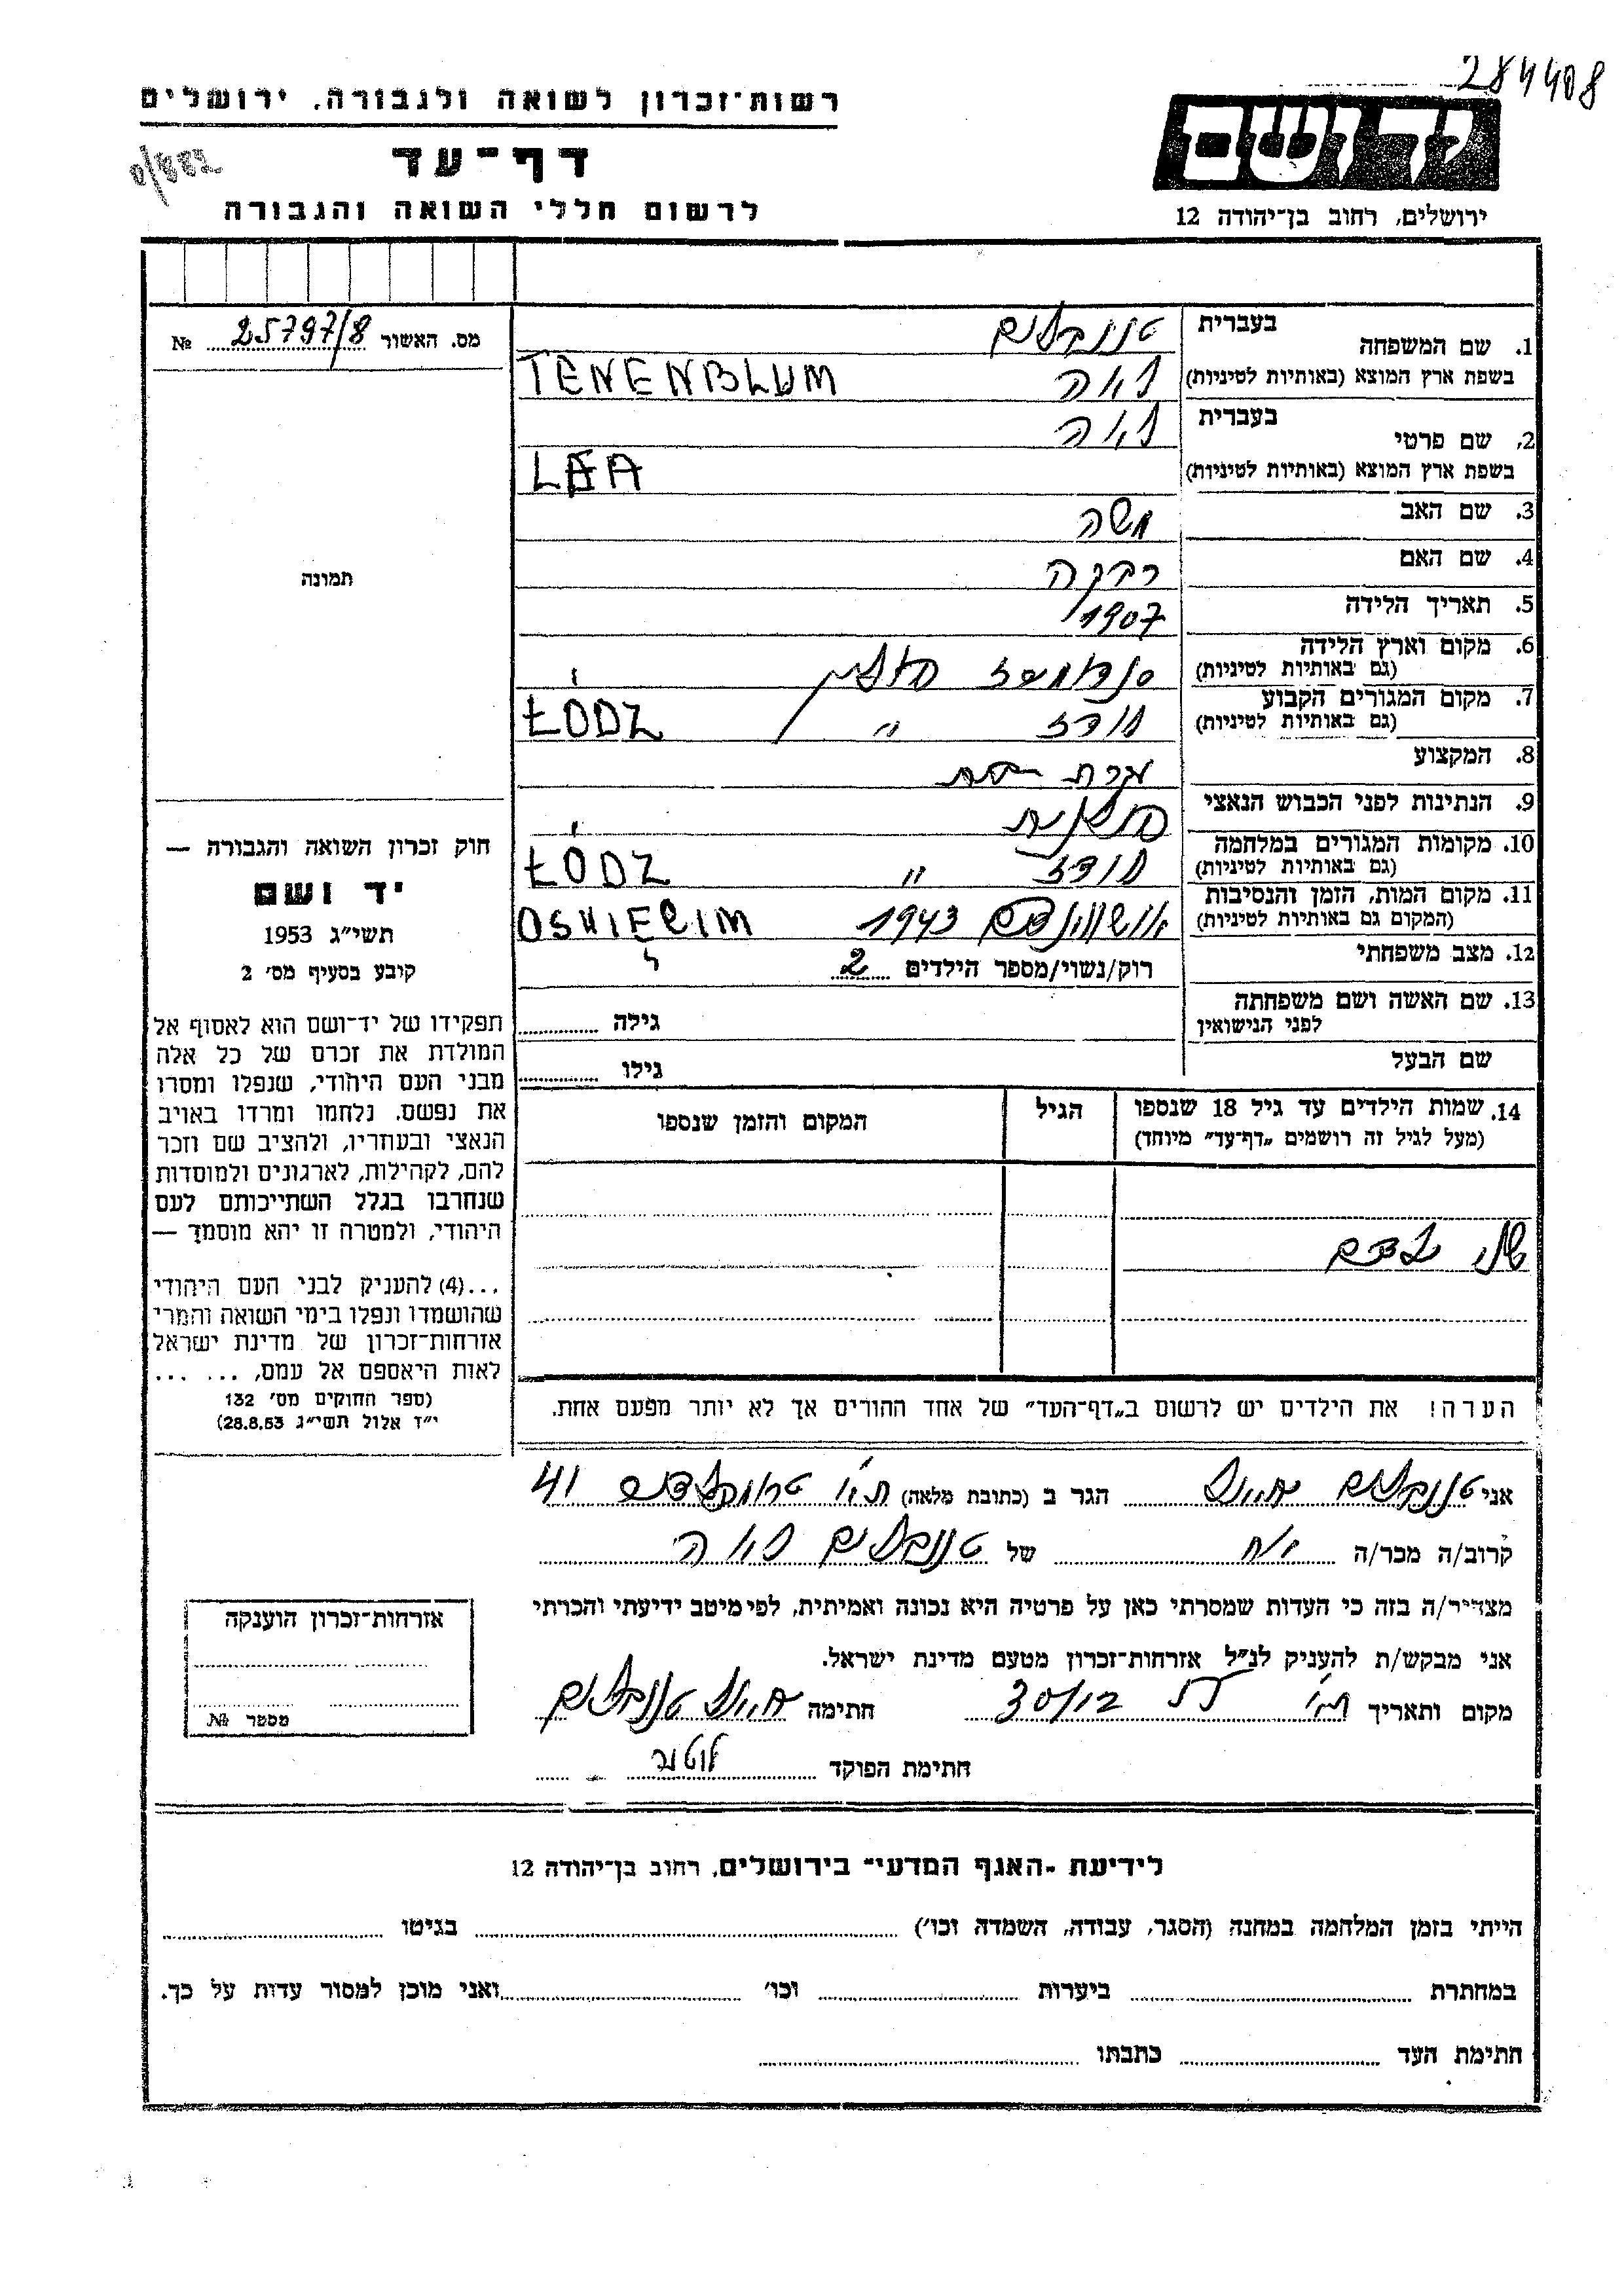 284408
רשות־זכרון לשואה ולגבורה, ירושלים
דף־עד
לרשום חללי השואה והגבורה
ידושם
ירושלים, רחוב בן־יהודה 12
מס. האשור 25797/8 №
תמונה
חוק זכרון השואה והגבורה —
יד ושם
תשי״ג 1953
קובע בסעיף מס׳ 2
תפקידו של יד־ושם הוא לאסוף אל
המולדת את זכרם של כל אלה
מבני העם היהודי, שנפלו ומסרו
את נפשם. נלחמו ומרדו באויב
הנאצי ובעוזריו, ולהציב שם וזכר
להם, לקהילות, לארגונים ולמוסדות
שנחרבו בגלל השתייכותם לעם
היהודי, ולמטרה זו יהא מוסמך —
...(4) להעניק לבני העם היהודי
שהושמדו ונפלו בימי השואה והמרי
אזרחות־זכרון של מדינת ישראל
לאות היאספם אל עמם, ... ...
(ספר החוקים מס׳ 132
י״ז אלול תשי״ג 28.8.53)
1. שם המשפחה בעברית טננבלום
בשפת ארץ המוצא (באותיות לטיניות) לאה TENENBLUM
2. שם פרטי בעברית לאה
בשפת ארץ המוצא (באותיות לטיניות) LEA
3. שם האב משה
4. שם האם רבקה
5. תאריך הלידה 1907
6. מקום וארץ הלידה פולין
(גם באותיות לטיניות)
7. מקום המגורים הקבוע לודז ״ ŁÓDZ
(גם באותיות לטיניות)
8. המקצוע עקרת בית
9. הנתינות לפני הכבוש הנאצי פולנית
10. מקומות המגורים במלחמה לודז ״ ŁÓDZ
(גם באותיות לטיניות)
11. מקום המות, הזמן והנסיבות 1943 OSWIECIM
(המקום גם באותיות לטיניות)
12. מצב משפחתי רוק/נשוי/מספר הילדים 2
13. שם האשה ושם משפחתה גילה
לפני הנישואין
שם הבעל גילו
14. שמות הילדים עד גיל 18 שנספו הגיל המקום והזמן שנספו
(מעל לגיל זה רושמים „דף־עד״ מיוחד)
שני ילדים
הערה! את הילדים יש לרשום ב„דף־העד״ של אחד ההורים אך לא יותר מפעם אחת.
אני טננבלום הגר ב (כתובת מלאה) ת״א 41
קרוב/ה מכר/ה אח של טננבלום לאה
מצהיר/ה בזה כי העדות שמסרתי כאן על פרטיה היא נכונה ואמיתית, לפי מיטב ידיעתי והכרתי
אני מבקש/ת להעניק לנ״ל אזרחות־זכרון מטעם מדינת ישראל.
מקום ותאריך ת״א 30/12 חתימה טננבלום
חתימת הפוקד
אזרחות־זכרון הוענקה
מספר №
לידיעת ״האגף המדעי״ בירושלים, רחוב בן־יהודה 12
הייתי בזמן המלחמה במחנה (הסגר, עבודה, השמדה וכו׳) בגיטו
במחתרת ביערות וכו׳ ואני מוכן למסור עדות על כך.
חתימת העד כתבתו